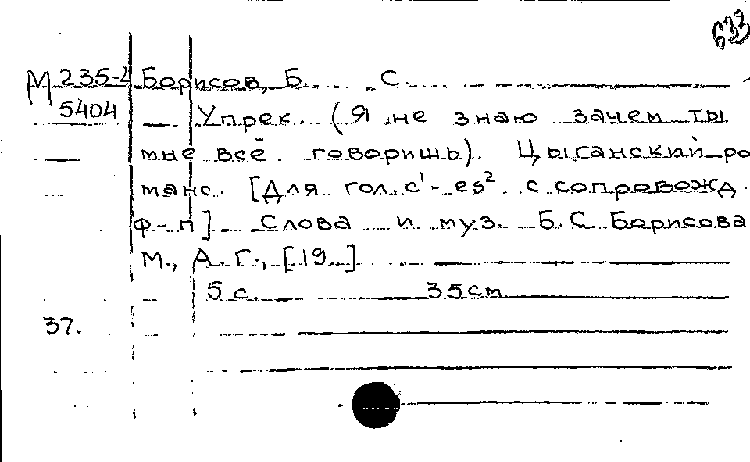 633
М 235-4 Борисов, Б. С.
5404 Упрек. (Я не знаю зачем ты
мне всё говоришь). Цыганский ро
манс. [Для гол. c¹-es² с сопровожд.
ф-п] Слова и муз. Б.С. Борисова
М., А. Г., [19..]
5 с. 35 см
37.